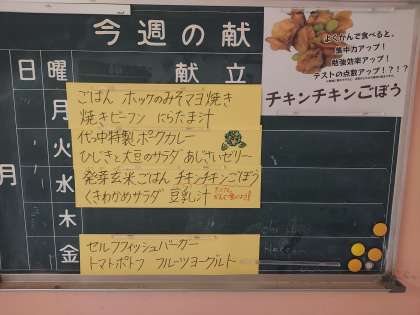 今週の献
日 曜 献 立
よくかんで食べると、
集中力アップ!
勉強効率アップ!
テストの点数アップ!?!?
チキンチキンごぼう
月
ごはん ホッケのみそマヨ焼き
焼きビーフン にらたま汁
火
代っ中特製ポークカレー
ひじきと大豆のサラダ あじさいゼリー
月
水
発芽玄米ごはん チキンチキンごぼう
くきわかめサラダ 豆乳汁
木
金
セルフフィッシュバーガー
トマトポトフ フルーツヨーグルト